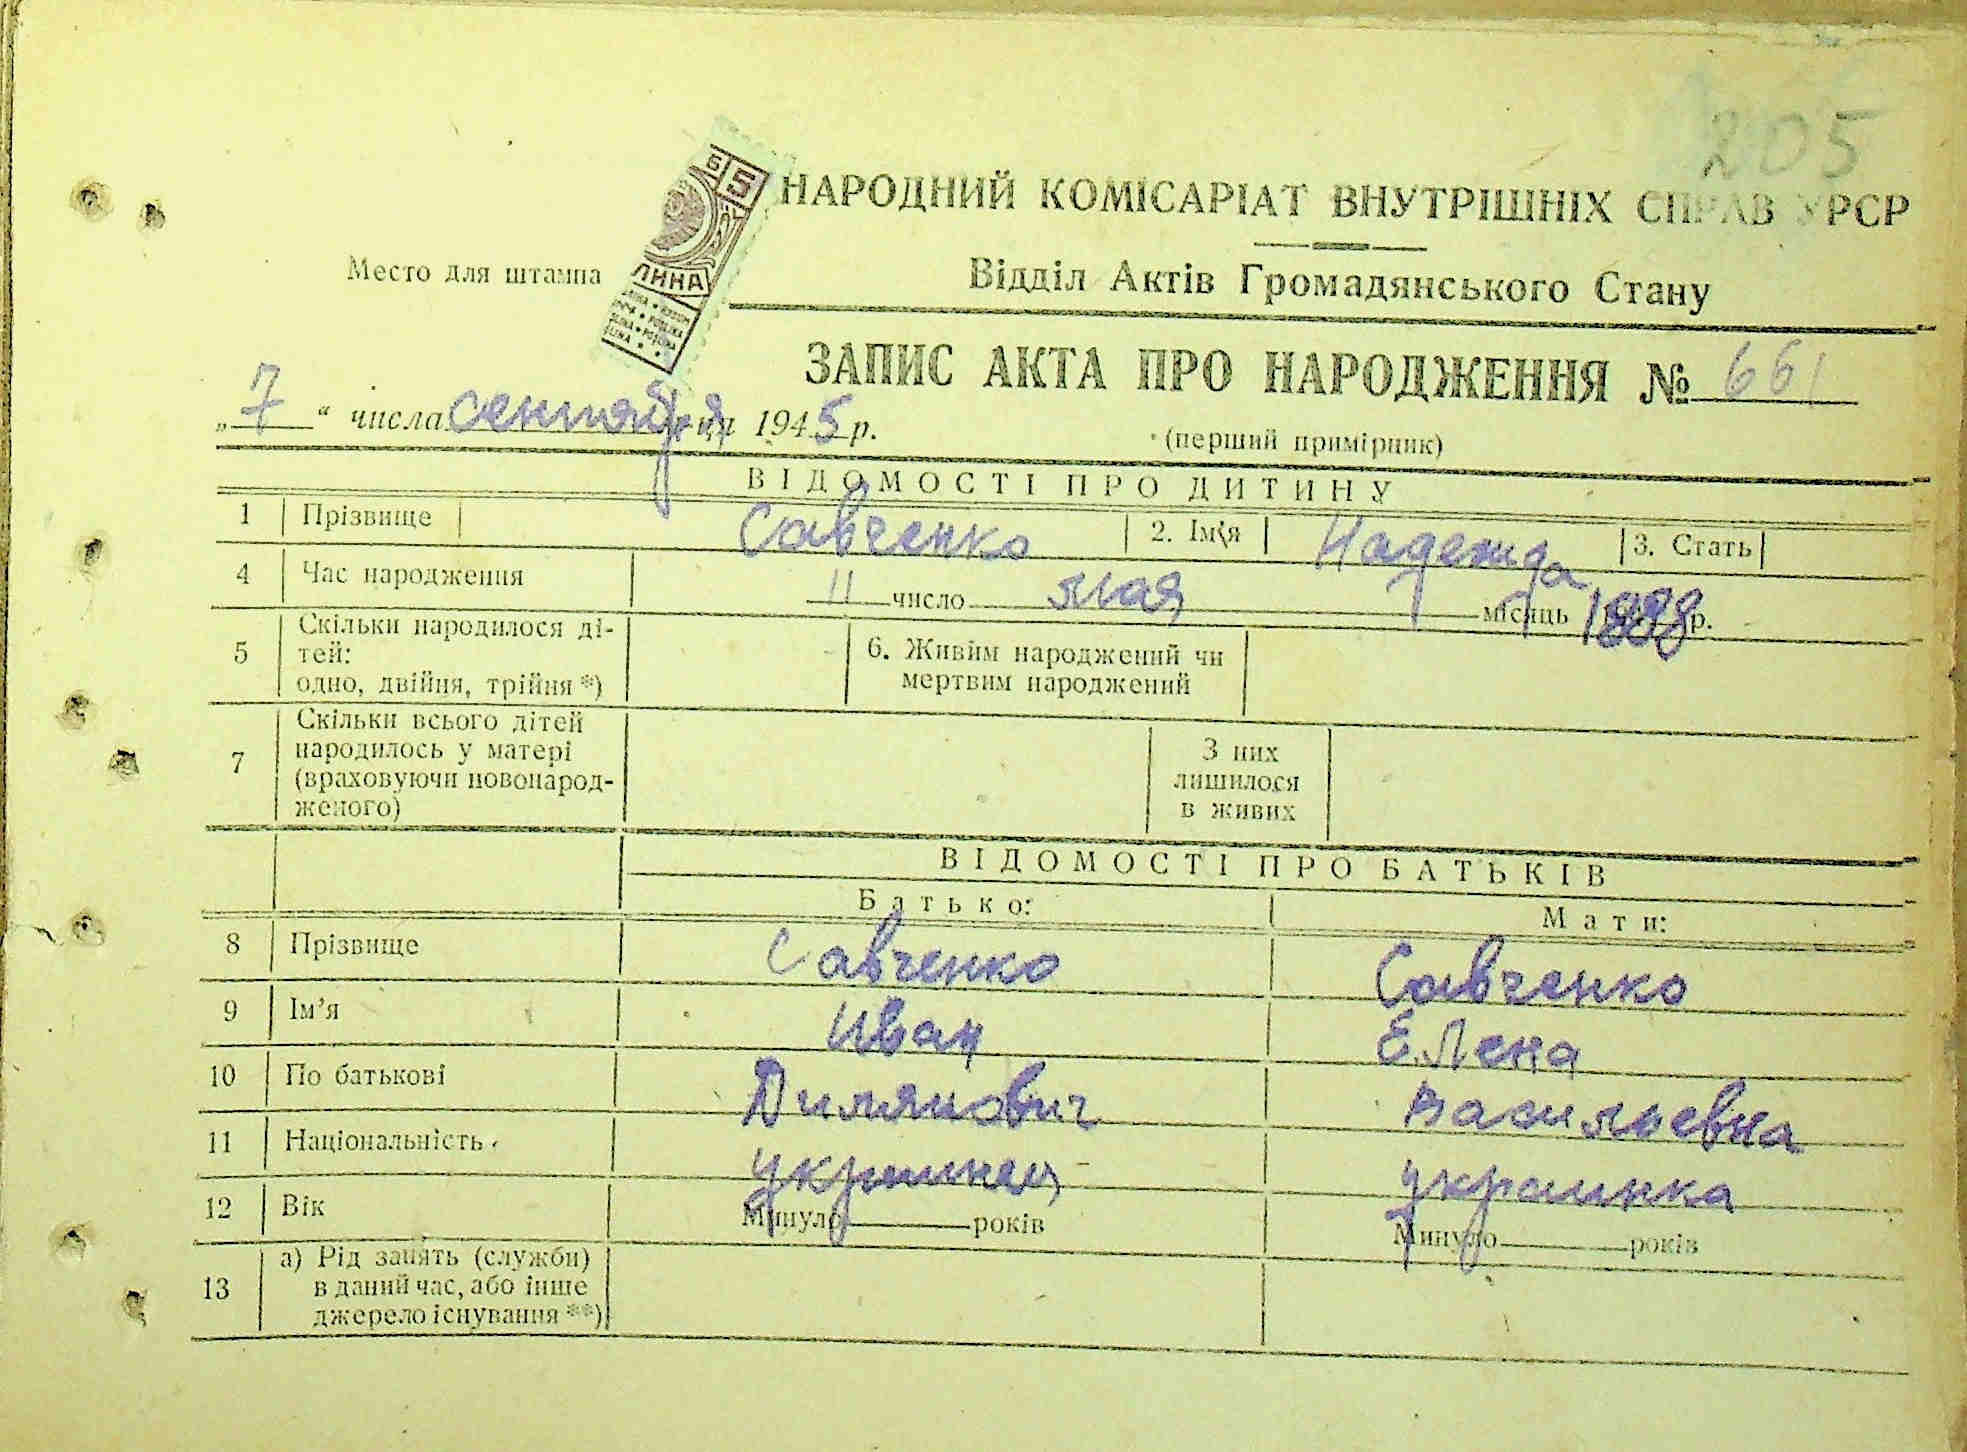 205
НАРОДНИЙ КОМІСАРІАТ ВНУТРІШНІХ СПРАВ УРСР
Место для штампа
Відділ Актів Громадянського Стану
ЗАПИС АКТА ПРО НАРОДЖЕННЯ № 661
„7“ числа сентября 1945 р.
(перший примірник)
ВІДОМОСТІ ПРО ДИТИНУ
1 Прізвище Савченко 2. Ім'я Надежда 3. Стать
4 Час народження 11 число мая місяць р.
5 Скільки народилося ді-
тей:
одно, двійня, трійня *)
6. Живим народжений чи
мертвим народжений
7 Скільки всього дітей
народилось у матері
(враховуючи новонарод-
женого)
З них
лишилося
в живих
ВІДОМОСТІ ПРО БАТЬКІВ
Батько: Мати:
8 Прізвище Савченко Савченко
9 Ім’я Иван Елена
10 По батькові Васильевна
11 Національність украинец украинка
12 Вік Минуло років Минуло років
13 а) Рід занять (служби)
в даний час, або інше
джерело існування **)